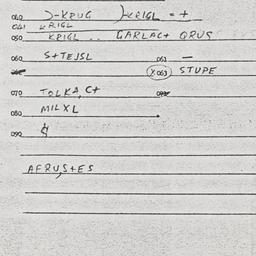 040 )-KRUG )-KRIGL = +
041 KRIGL
050 KRIGL .. GARLACT QRUG
060 S+TEJSL 061 —
X 063 STUPE
070 TOLKA, C+
080 MILXL
090 ¢
AFRUS+ES